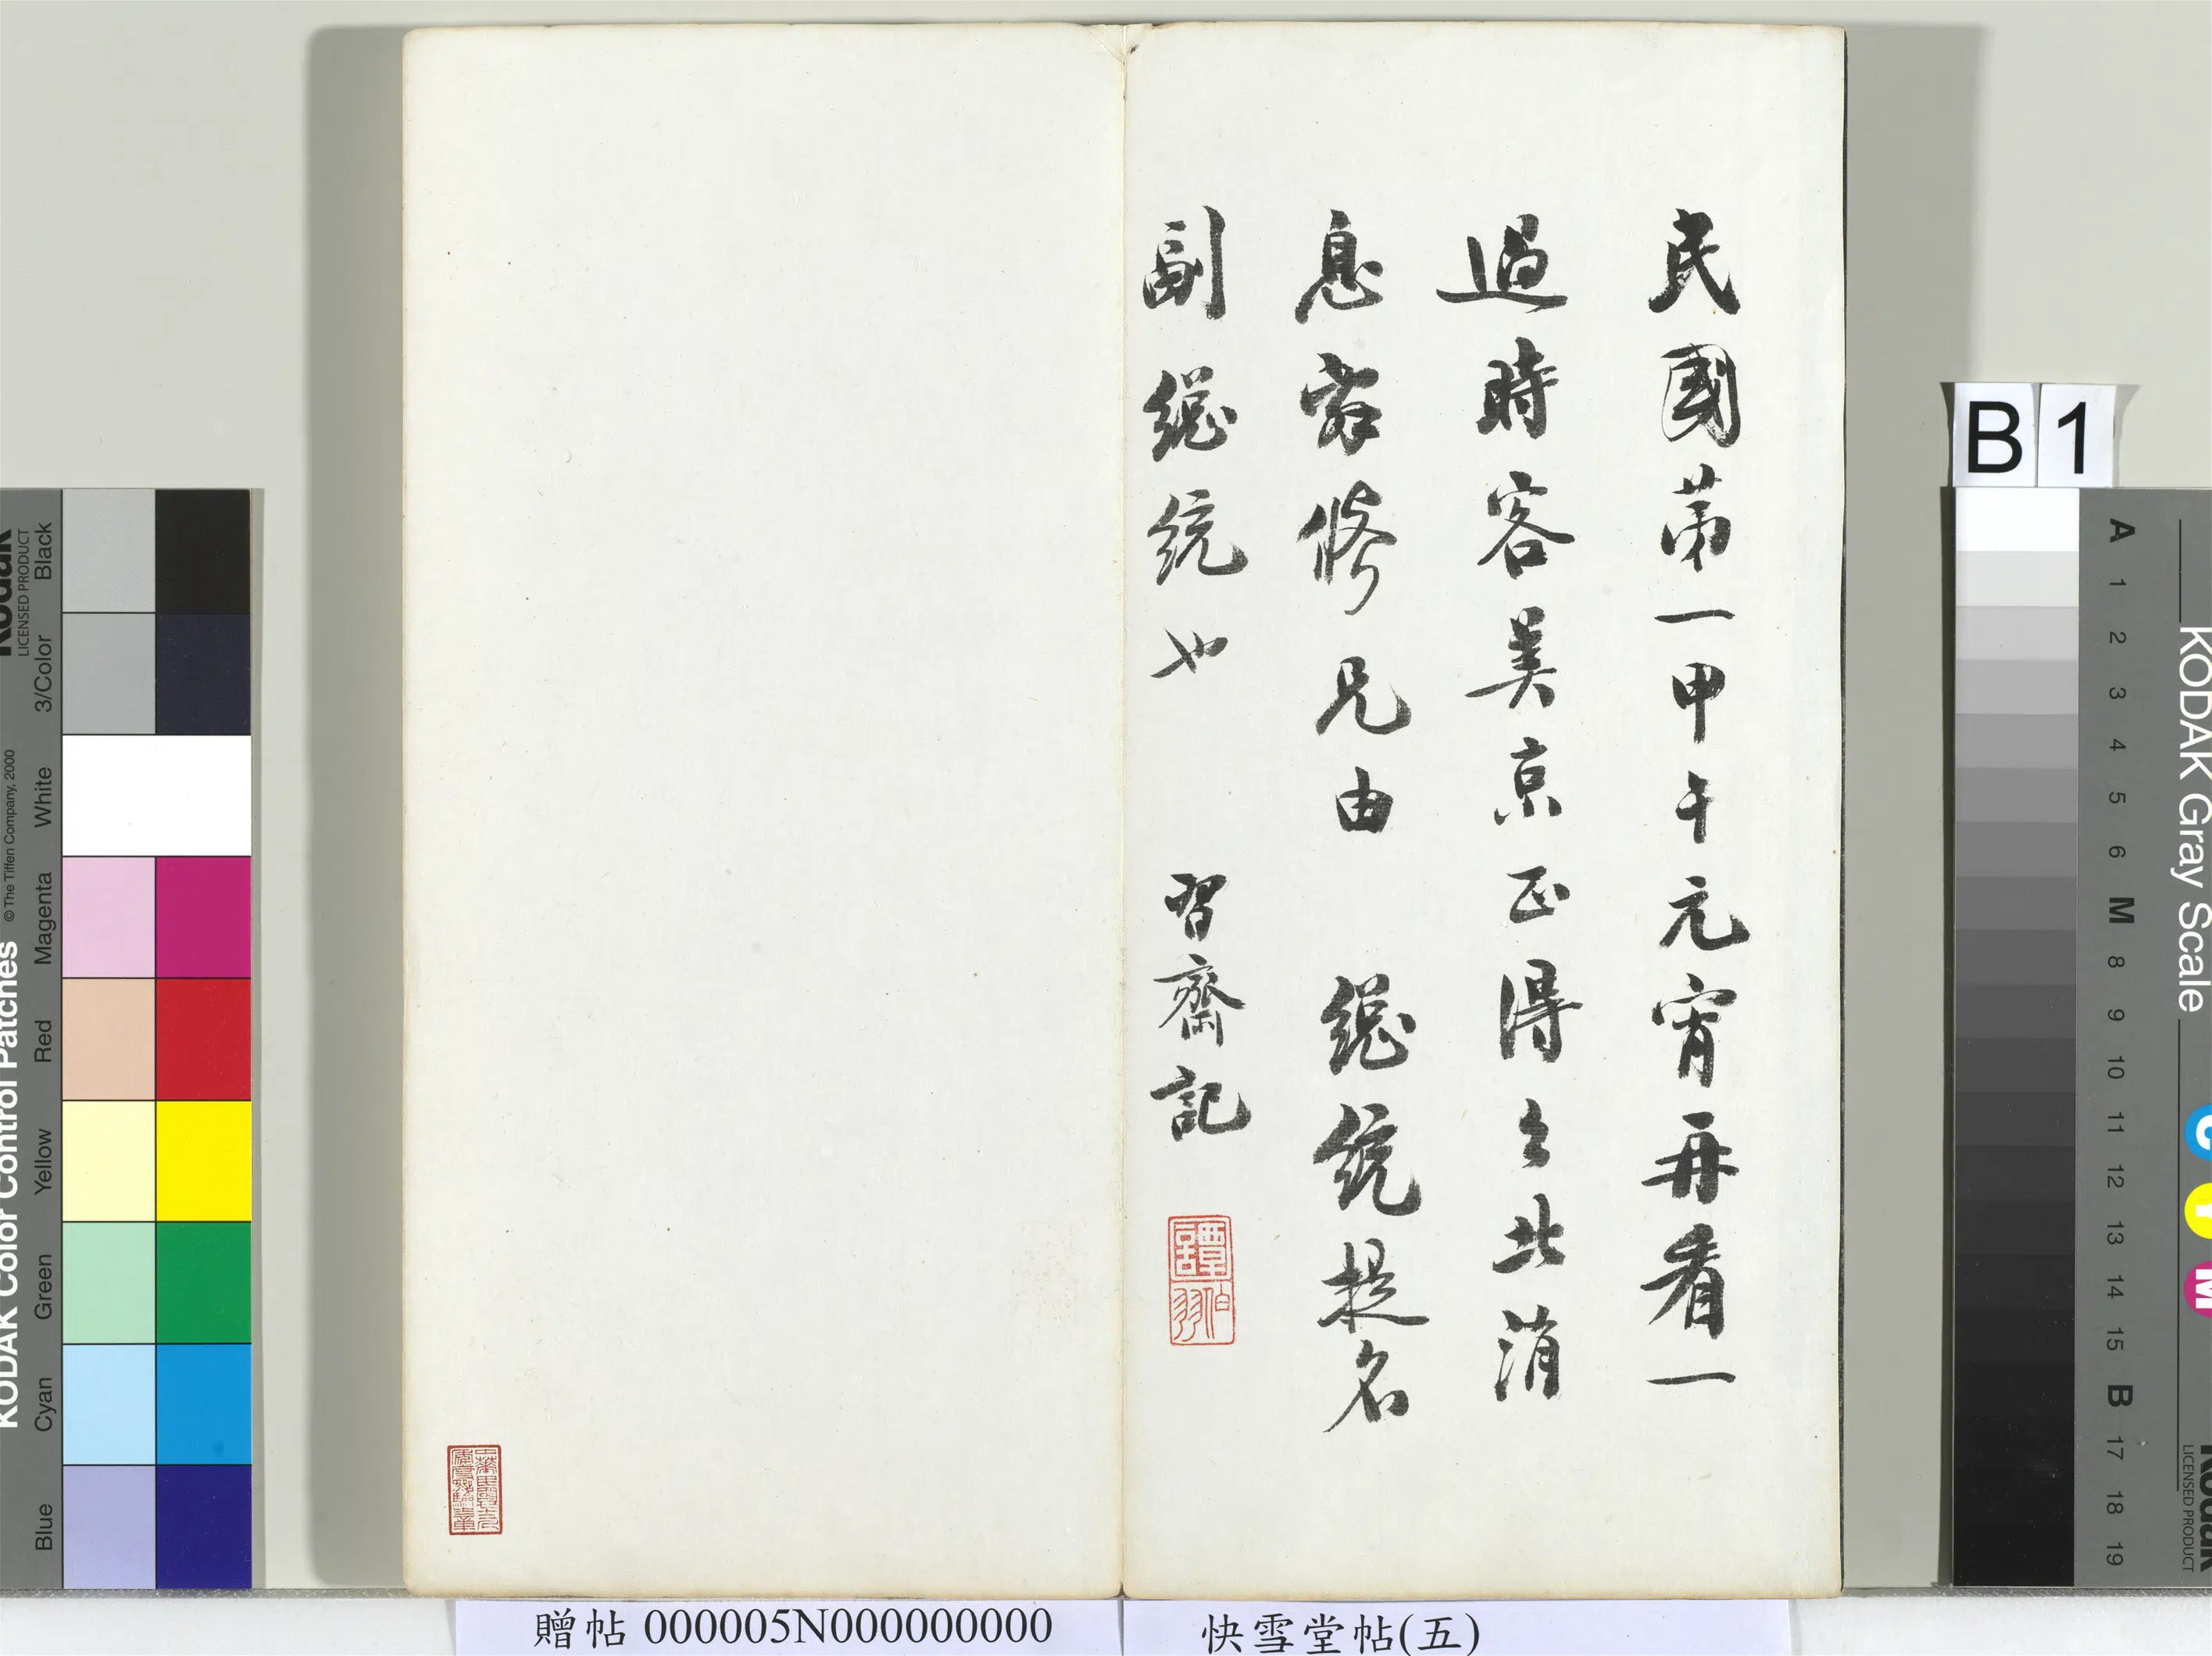 民國第一甲午元宵再看一
過時客美京正得台北消
息辭修兄由 總統提名
副總統也 習齋記
譚伯羽
B 1
KODAK Gray Scale
A 1 2 3 4 5 6 M 8 9 10 11 12 13 14 15 B 17 18 19
C Y M
Kodak
LICENSED PRODUCT
KODAK Color Control Patches
© The Tiffen Company, 2000
Kodak
LICENSED PRODUCT
Blue Cyan Green Yellow Red Magenta White 3/Color Black
贈帖 000005N000000000
快雪堂帖(五)